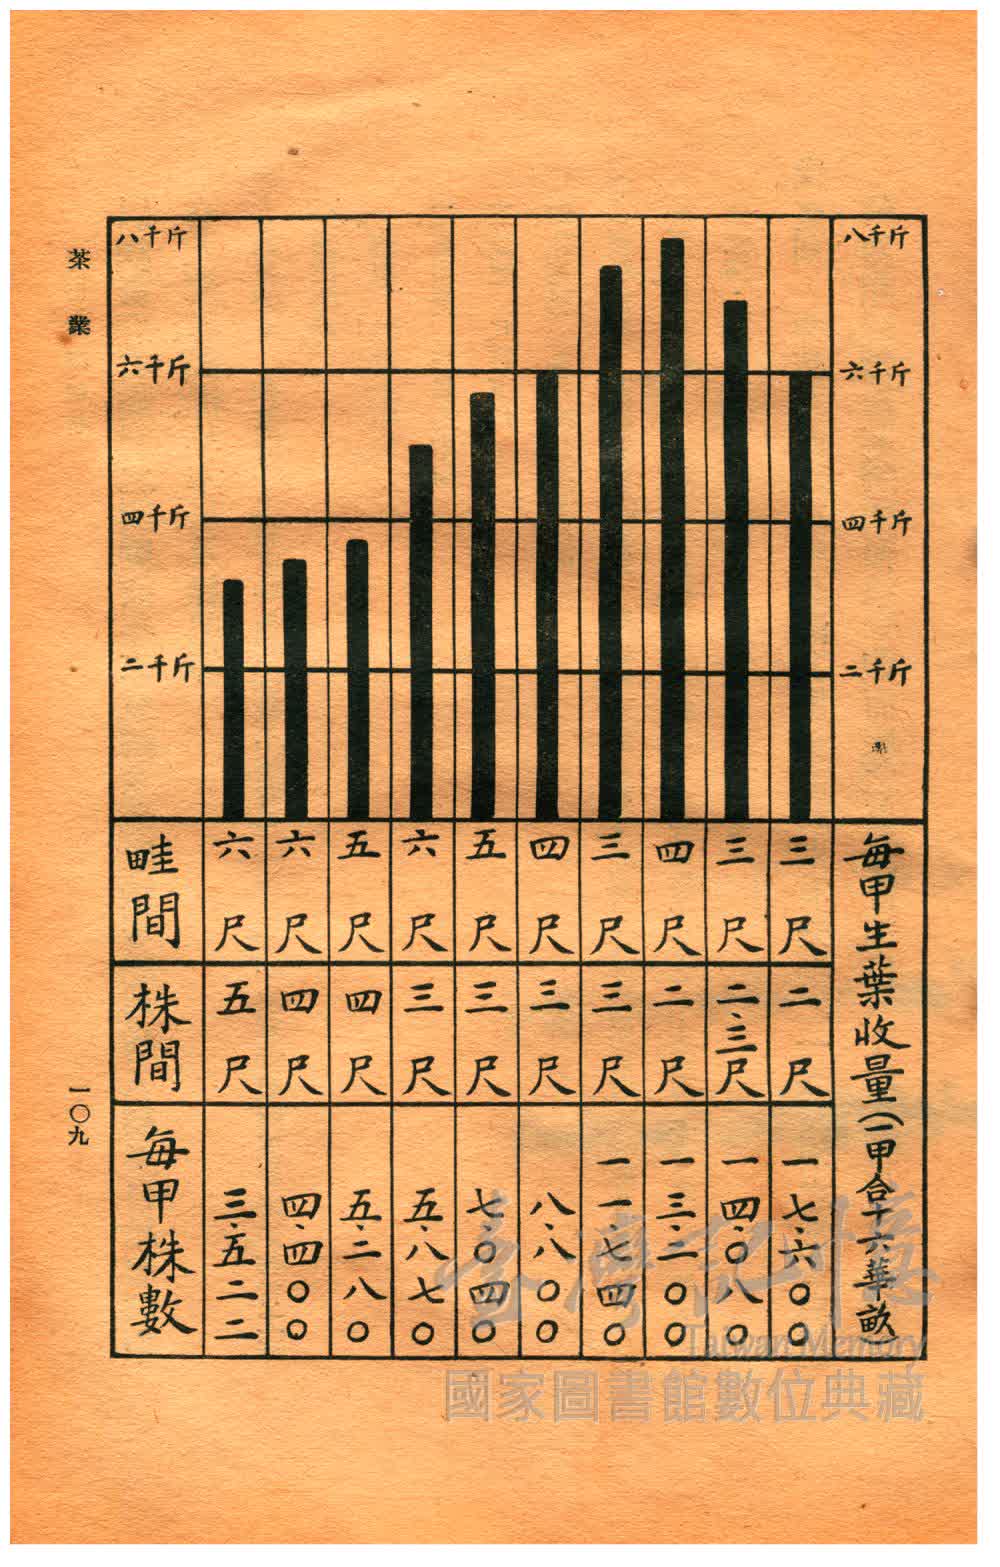 茶業
一〇九
八千斤
六千斤
四千斤
二千斤
八千斤
六千斤
四千斤
二千斤
每甲生葉收量(一甲合十六華畝
畦間 六尺 六尺 五尺 六尺 五尺 四尺 三尺 四尺 三尺 三尺
株間 五尺 四尺 四尺 三尺 三尺 三尺 三尺 二尺 二.三尺 二尺
每甲株數 三.五二二 四.四〇〇 五.二八〇 五.八七〇 七.〇四〇 八.八〇〇 一一.七四〇 一三.二〇〇 一四.〇八〇 一七.六〇〇
臺灣記憶
Taiwan Memory
國家圖書館數位典藏